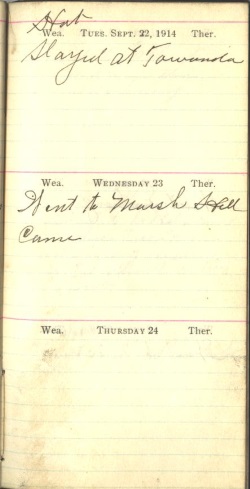 Hot
Wea. TUES. SEPT. 22, 1914 Ther.
Stayed at Towanda
Wea. WEDNESDAY 23 Ther.
Went to Marsh Hill
Came
Wea. THURSDAY 24 Ther.